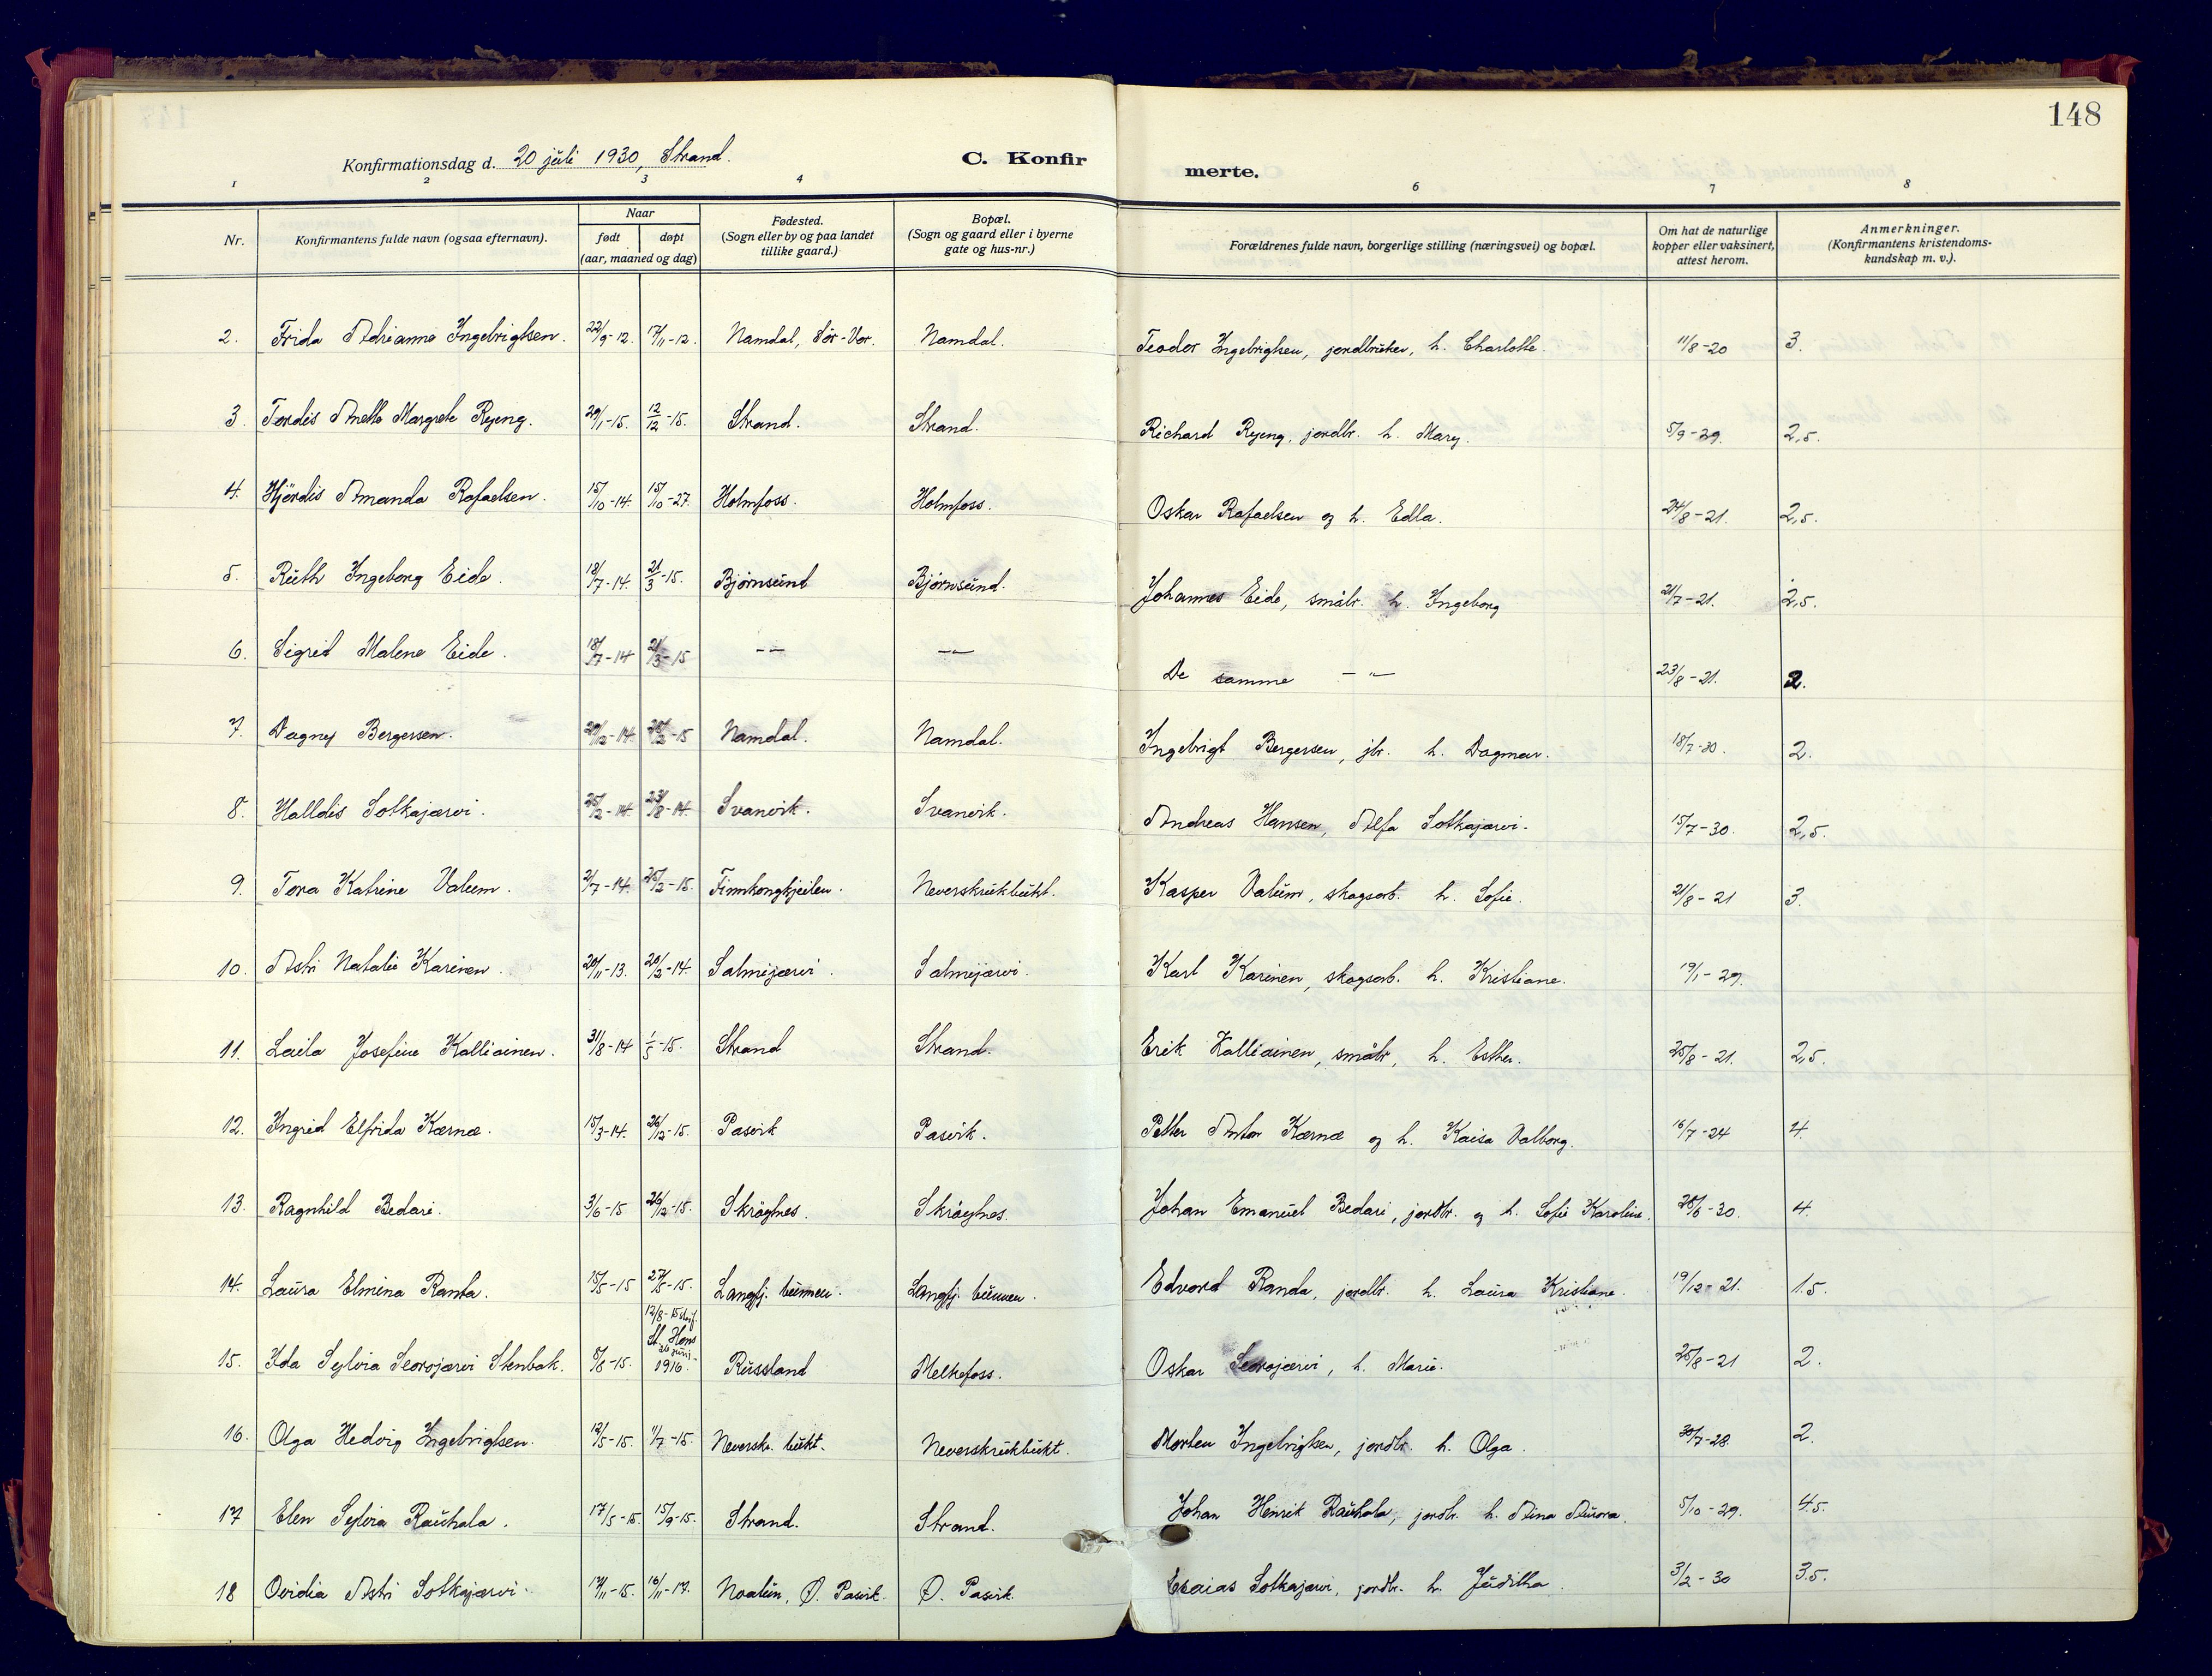 148
Konfirmationsdag d. 20 juli 1930, Strand. C. Konfir merte.
1 2 3 4 6 7 8
Nr. Konfirmantens fulde navn (ogsaa efternavn). Naar født døpt (aar, maaned og dag) Fødested. (Sogn eller by og paa landet tillike gaard.) Bopæl. (Sogn og gaard eller i byerne gate og hus-nr.) Forældrenes fulde navn, borgerlige stilling (næringsvei) og bopæl. Om hat de naturlige kopper eller vaksinert, attest herom. Anmerkninger. (Konfirmantens kristendoms-kundskap m. v.).
2. Frida Adrianne Ingebrigtsen. 22/9-12. 17/11-12. Namdal, Sør-Var. Namdal. Teodor Ingebrigtsen, jordbruker, h. Charlotte. 11/8-20 3.
3. Tordis Anette Margrete Ryeng. 29/1-15. 12/12-15. Strand. Strand. Richard Ryeng, jordbr. h. Mary. 5/9-29. 2,5.
4. Hjördis Amanda Rafaelsen. 15/10-14. 15/10-27. Holmfoss. Holmfoss. Oskar Rafaelsen og h. Edla. 24/8-21. 2,5.
5. Ruth Ingeborg Eide. 18/7-14. 21/3-15. Bjørnsund Bjørnsund. Johannes Eide, småbr. h. Ingeborg 21/7-21. 2,5.
6. Sigrid Malene Eide. 18/7-14 21/3-15 -"- -"- De samme -"- 23/8-21. 2.
7. Dagny Bergersen. 29/12-14. 28/2-15 Namdal. Namdal. Ingebrigt Bergersen, jbr. h. Dagmar. 18/7-30. 2.
8. Halldis Sotkajærvi. 25/2-14. 23/8-14. Svanvik. Svanvik. Andreas Hansen, Alfa Sotkajærvi. 15/7-30. 2,5.
9. Tora Katrine Valum. 2/7-14. 25/2-15. Finnkongkjeilen. Neverskrukbukt. Kasper Valum, skogsarb. h. Sofie. 21/8-21 3.
10. Astri Natalie Karinen. 20/11-13. 20/2-14. Salmijærvi. Salmijærvi. Karl Karinen, skogsarb. h. Kristiane. 19/1-29.
11. Laila Josefine Kalliainen. 31/8-14 1/5-15. Strand Strand. Erik Kalliainen, småbr., h. Esther. 25/8-21. 2,5.
12. Ingrid Elfrida Kærnæ. 15/3-14. 26/12-15. Pasvik Pasvik. Petter Anton Kærnæ og h. Kaisa Valborg. 16/7-24 4.
13. Ragnhild Bedari. 3/6-15 26/12-15. Skrøytnes. Skrøytnes. Johan Emanuel Bedari, jordbr. og h. Sofie Karoline. 28/6-30. 4.
14. Laura Elmina Ranta. 15/5-15 27/5-15. Langfj. bunnen. Langfj. bunnen. Edvard Randa, jordbr. h. Laura Kristiane. 19/12-21. 1.5.
15. Ida Sylvia Seorojærvi Stenbak. 8/8-15. 12/8-15 St. Hans 1916. Russland Melkefoss. Oskar Seorojærvi, h. Marie. 25/8-21 2.
16. Olga Hedvig Ingebrigtsen. 12/5-15. 11/7-15. Neversk. bukt. Neverskrukbukt. Morten Ingebrigtsen, jordbr. h. Olga. 30/7-28. 2.
17 Elen Sylvia Rauhala. 17/5-15. 15/9-15. Strand. Strand. Johan Henrik Rauhala, jordbr. h. Aina Aurora. 5/10-29. 4.5.
18 Ovidia Astri Sotkajærvi. 17/11-15. 16/11-17. Noatun, Ø. Pasvik. Ø. Pasvik. Esaias Sotkajærvi, jordbr. h. Juditha. 3/2-30 3.5.